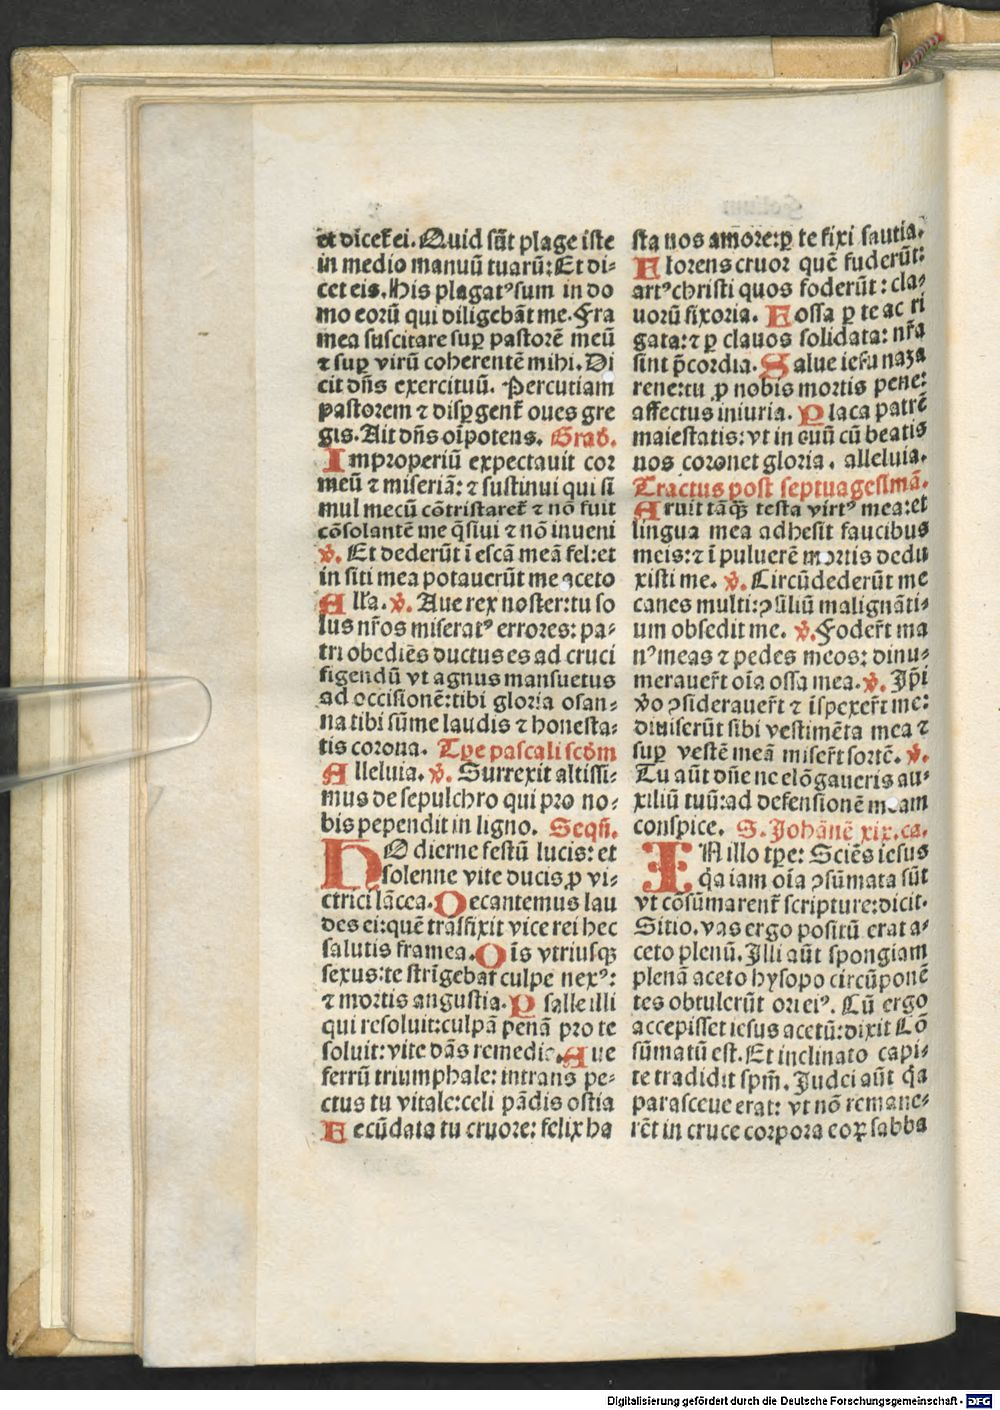 et dicet̃ ei. Quid sũt plage iste
in medio manuũ tuarũ: Et di⸗
cet eis. His plagatꝰ sum in do
mo eorũ qui diligebãt me. Fra
mea suscitare suꝑ pastorẽ meũ
⁊ suꝑ virũ coherentẽ mihi. Di
cit dñs exercituũ. Percutiam
pastorem ⁊ disꝑgent̃ oues gre
gis. Ait dñs oĩpotens. Grad̃.
Improperiũ expectauit cor
meũ ⁊ miseriã: ⁊ sustinui qui si
mul mecũ cõtristaret̃ ⁊ nõ fuit
cõsolantẽ me q̃siui ⁊ nõ inueni
℣. Et dederũt ĩ escã meã fel: et
in siti mea potauerũt me aceto
Alla. ℣. Aue rex noster: tu so
lus nr̃os miseratꝰ errores: pa⸗
tri obediẽs ductus es ad cruci
figendũ vt agnus mansuetus
ad occisionẽ: tibi gloria osan⸗
na tibi sũme laudis ⁊ honesta⸗
tis corona. Tꝑe pascali scd̃m
Alleluia. ℣. Surrexit altissi⸗
mus de sepulchro qui pro no⸗
bis pependit in ligno. Seqñ.
HOdierne festũ lucis: et
solenne vite ducis ꝓ vi⸗
ctrici lãcea. Decantemus lau
des ei: quẽ trãsfixit vice rei hec
salutis framea. Oĩs vtriusqꝫ
sexus: te strĩgebat culpe nexꝰ:
⁊ mortis angustia. Psalle illi
qui resoluit: culpã penã pro te
soluit: vite dãs remedia. Aue
ferrũ triumphale: intrans pe⸗
ctus tu vitale: celi pãdis ostia
Fecũdata tu cruore: felix ha
sta nos amore: ꝑ te fixi sautia.
Florens cruor quẽ fuderũt:
artꝰ christi quos foderũt: cla⸗
uorũ fixoria. Fossa ꝑ te ac ri
gata: ⁊ ꝑ clauos solidata: nr̃a
sint p̃cordia. Salue iesu naza
rene: tu ꝓ nobis mortis pene:
affectus iniuria. Placa patrẽ
maiestatis: vt in euũ cũ beatis
nos coronet gloria. alleluia.
Tractus post septuagesimã.
Aruit tãq̃ꝫ testa virtꝰ mea: et
lingua mea adhesit faucibus
meis: et ĩ puluerẽ mortis dedu
xisti me. ℣. Circũdederũt me
canes multi: ꝯsiliũ malignãti⸗
um obsedit me. ℣. Foder̃t ma
nꝰ meas ⁊ pedes meos: dinu⸗
merauer̃t oĩa ossa mea. ℣. Ip̃i
ṽo ꝯsiderauer̃t ⁊ ĩspexer̃t me:
diuiserũt sibi vestimẽta mea ⁊
suꝑ vestẽ meã miser̃t sortẽ. ℣.
Tu aũt dñe ne elõgaueris au⸗
xiliũ tuũ: ad defensionẽ meam
conspice. S. Johãnẽ xix. ca.
IN illo tꝑe: Sciẽs iesus
q̃a iam oĩa ꝯsũmata sũt
vt cõsũmarent̃ scripture: dicit.
Sitio. vas ergo positũ erat a⸗
ceto plenũ. Illi aũt spongiam
plenã aceto hysopo circũponẽ
tes obtulerũt ori eiꝰ. Cũ ergo
accepisset iesus acetũ: dixit Cõ
sũmatũ est. Et inclinato capi⸗
te tradidit spm̃. Judei aũt q̃a
parasceue erat: vt nõ remane⸗
rẽt in cruce corpora eoꝝ sabba
Digitalisierung gefördert durch die Deutsche Forschungsgemeinschaft - DFG